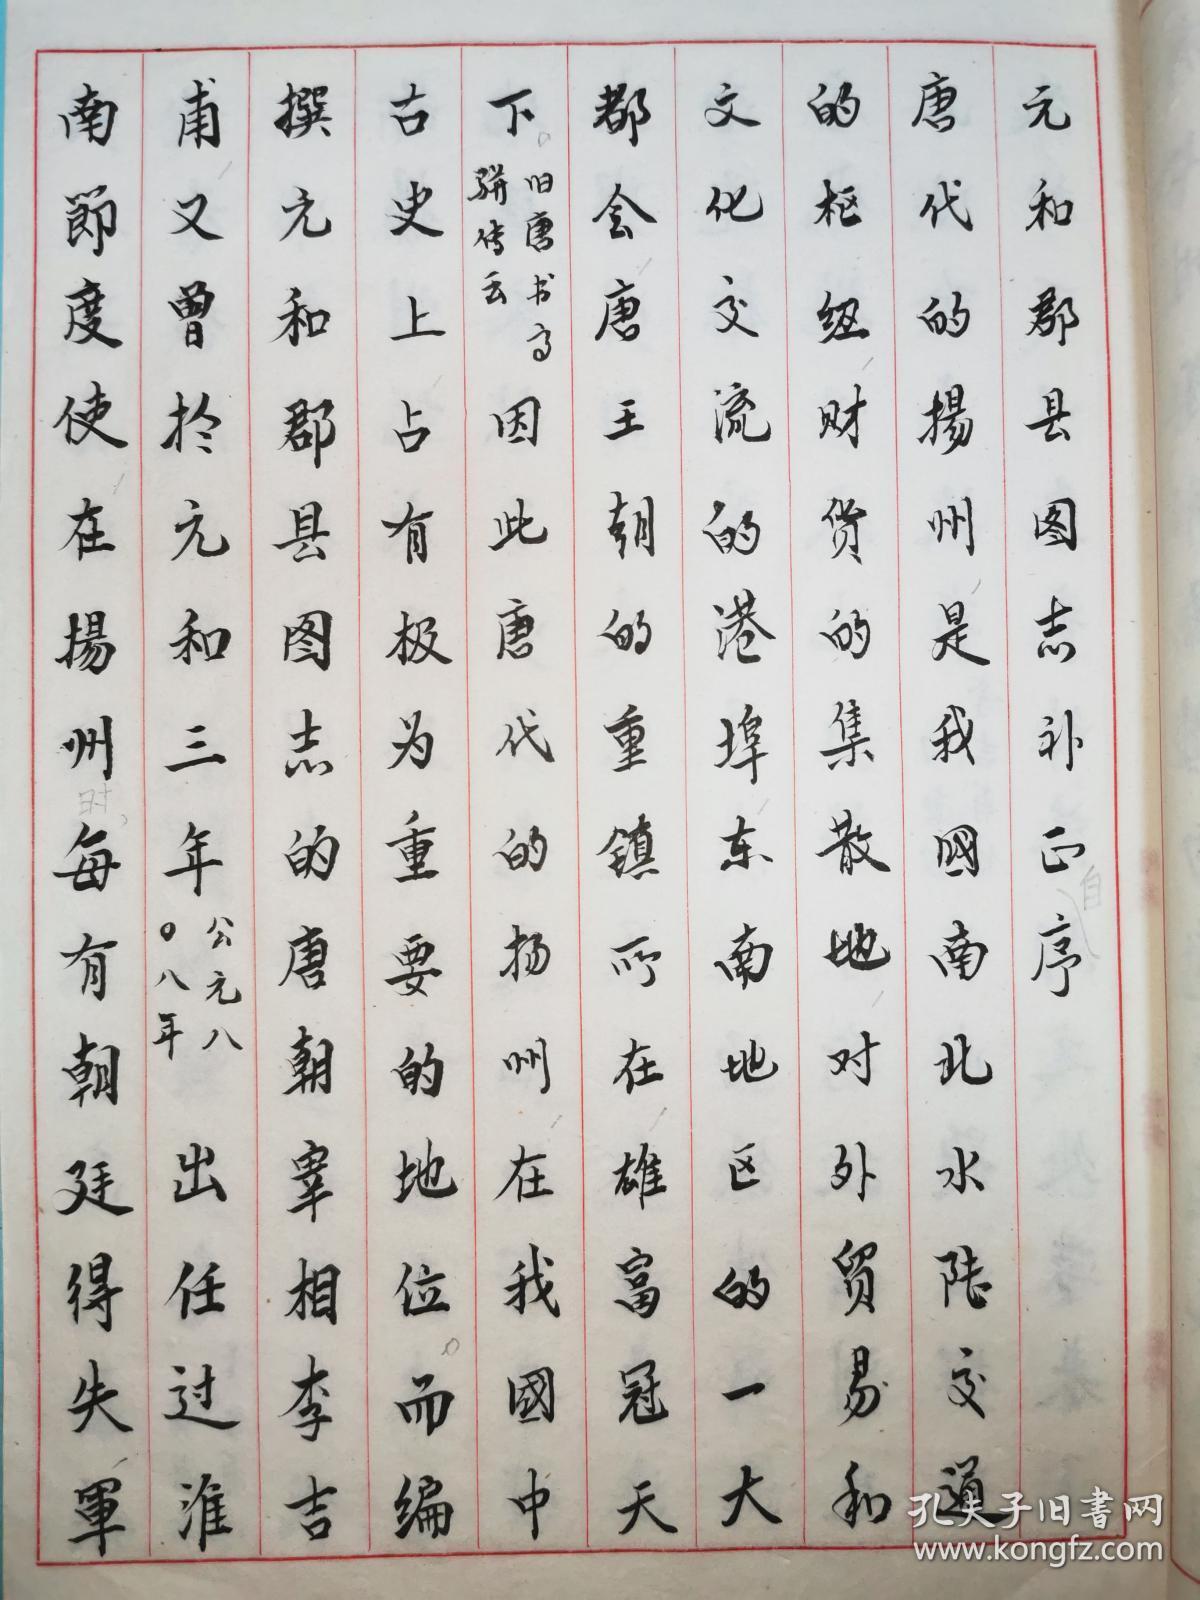 元和郡县图志补正序
自
唐代的揚州是我國南北水陆交道
的枢纽财货的集散地对外贸易和
文化交流的港埠东南地区的一大
都会唐王朝的重鎮所在雄富冠天
下旧唐书高骈传云因此唐代的扬州在我國中
古史上占有极为重要的地位而编
撰元和郡县图志的唐朝宰相李吉
甫又曾扵元和三年公元八〇八年出任过淮
南節度使在揚州时每有朝廷得失軍
孔夫子旧書网
www.kongfz.com